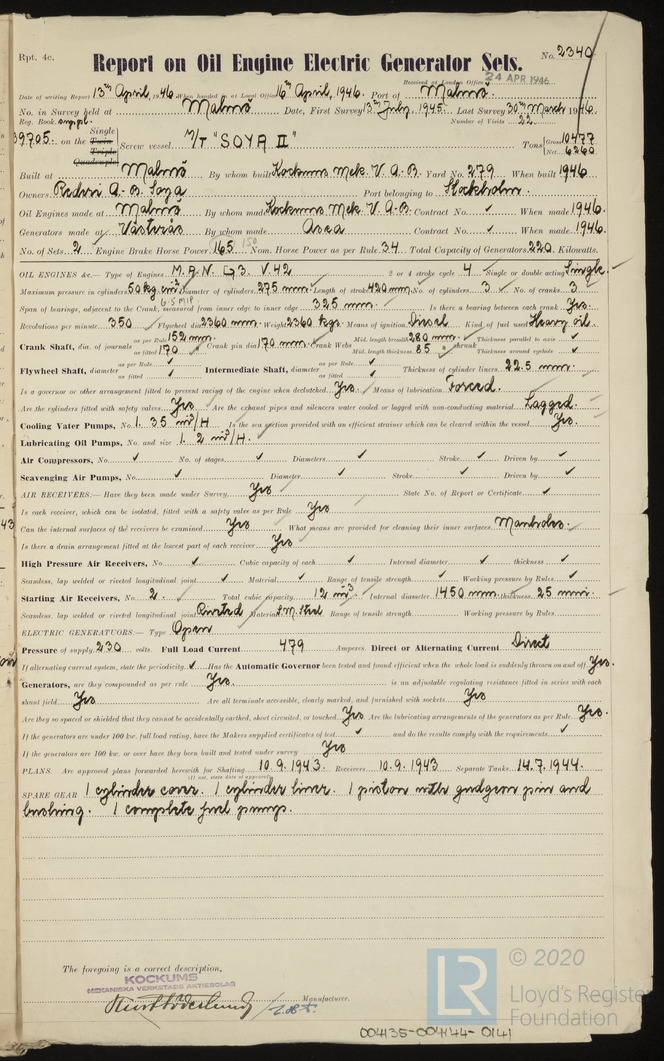 Rpt. 4c.
Report on Oil Engine Electric Generator Sets.
No. 2340
Received at London Office 24 APR 1946
Date of writing Report 13th April, 1946. When handed in at Local Office 16th April, 1946. Port of Malmö
No. in Survey held at Malmö Date, First Survey 13th July, 1945. Last Survey 30th March 1946
Reg. Book. Number of Visits 22
39705. on the Single Twin Triple Quadruple Screw vessel M/T "SOYA II" Tons Gross 10477 Net 6260
Built at Malmö By whom built Kockums Mek. V. A.-B. Yard No. 279 When built 1946
Owners Rederi A.-B. Soya Port belonging to Stockholm
Oil Engines made at Malmö By whom made Kockums Mek V A.-B. Contract No. ✓ When made 1946.
Generators made at Västerås By whom made Asea Contract No. ✓ When made 1946.
No. of Sets 2 Engine Brake Horse Power 165 150 Nom. Horse Power as per Rule 34 Total Capacity of Generators 220 Kilowatts.
OIL ENGINES &c.— Type of Engines M.A.N. G3. V.42 2 or 4 stroke cycle 4 Single or double acting Single
Maximum pressure in cylinders 50 kg cm² Diameter of cylinders 275 mm. Length of stroke 420 mm. No. of cylinders 3 No. of cranks 3
Span of bearings, adjacent to the Crank, measured from inner edge to inner edge 325 mm. Is there a bearing between each crank Yes.
Revolutions per minute 350 Flywheel dia. 2360 mm. Weight 2360 kgs. Means of ignition Diesel Kind of fuel used Heavy oil
Crank Shaft, dia. of journals as per Rule 152 mm. as fitted 170 Crank pin dia 170 mm. Crank Webs Mid. length breadth 280 mm. Mid. length thickness 85 shrunk Thickness parallel to axis ✓ Thickness around eyehole ✓
Flywheel Shaft, diameter as per Rule ✓ as fitted ✓ Intermediate Shaft, diameter as per Rule ✓ as fitted ✓ Thickness of cylinder liners 22.5 mm.
Is a governor or other arrangement fitted to prevent racing of the engine when declutched Yes. Means of lubrication Forced.
Are the cylinders fitted with safety valves Yes Are the exhaust pipes and silencers water cooled or lagged with non-conducting material Lagged.
Cooling Water Pumps, No. 1. 35 m³/H Is the sea suction provided with an efficient strainer which can be cleared within the vessel Yes.
Lubricating Oil Pumps, No. and size 1. 2 m³/H.
Air Compressors, No. ✓ No. of stages ✓ Diameters ✓ Stroke ✓ Driven by ✓
Scavenging Air Pumps, No. ✓ Diameter ✓ Stroke ✓ Driven by ✓
AIR RECEIVERS:— Have they been made under Survey Yes State No. of Report or Certificate ✓
Is each receiver, which can be isolated, fitted with a safety valve as per Rule Yes
Can the internal surfaces of the receivers be examined Yes What means are provided for cleaning their inner surfaces Manholes.
Is there a drain arrangement fitted at the lowest part of each receiver Yes
High Pressure Air Receivers, No. ✓ Cubic capacity of each ✓ Internal diameter ✓ thickness ✓
Seamless, lap welded or riveted longitudinal joint ✓ Material ✓ Range of tensile strength ✓ Working pressure by Rules ✓
Starting Air Receivers, No. 2. Total cubic capacity 12 m³ Internal diameter 1450 mm. thickness 25 mm.
Seamless, lap welded or riveted longitudinal joint Riveted Material S.M. Steel Range of tensile strength Working pressure by Rules
ELECTRIC GENERATORS:— Type Open
Pressure of supply 230 volts. Full Load Current 479 Amperes. Direct or Alternating Current Direct
If alternating current system, state the periodicity ✓ Has the Automatic Governor been tested and found efficient when the whole load is suddenly thrown on and off. Yes.
Generators, are they compounded as per rule Yes. is an adjustable regulating resistance fitted in series with each
shunt field Yes Are all terminals accessible, clearly marked, and furnished with sockets Yes
Are they so spaced or shielded that they cannot be accidentally earthed, short circuited, or touched Yes Are the lubricating arrangements of the generators as per Rule Yes.
If the generators are under 100 kw. full load rating, have the Makers supplied certificates of test ✓ and do the results comply with the requirements ✓
If the generators are 100 kw. or over have they been built and tested under survey Yes
PLANS. Are approved plans forwarded herewith for Shafting 10.9.1943. Receivers 10.9.1943 Separate Tanks 14.7.1944.
(If not, state date of approval)
SPARE GEAR 1 cylinder cover. 1 cylinder liner. 1 piston with gudgeon pin and
bushing. 1 complete fuel pump.
The foregoing is a correct description,
KOCKUMS
MEKANISKA VERKSTADS AKTIEBOLAG
Manufacturer.
LR © 2020
Lloyd's Register
Foundation
004135-004144-0141